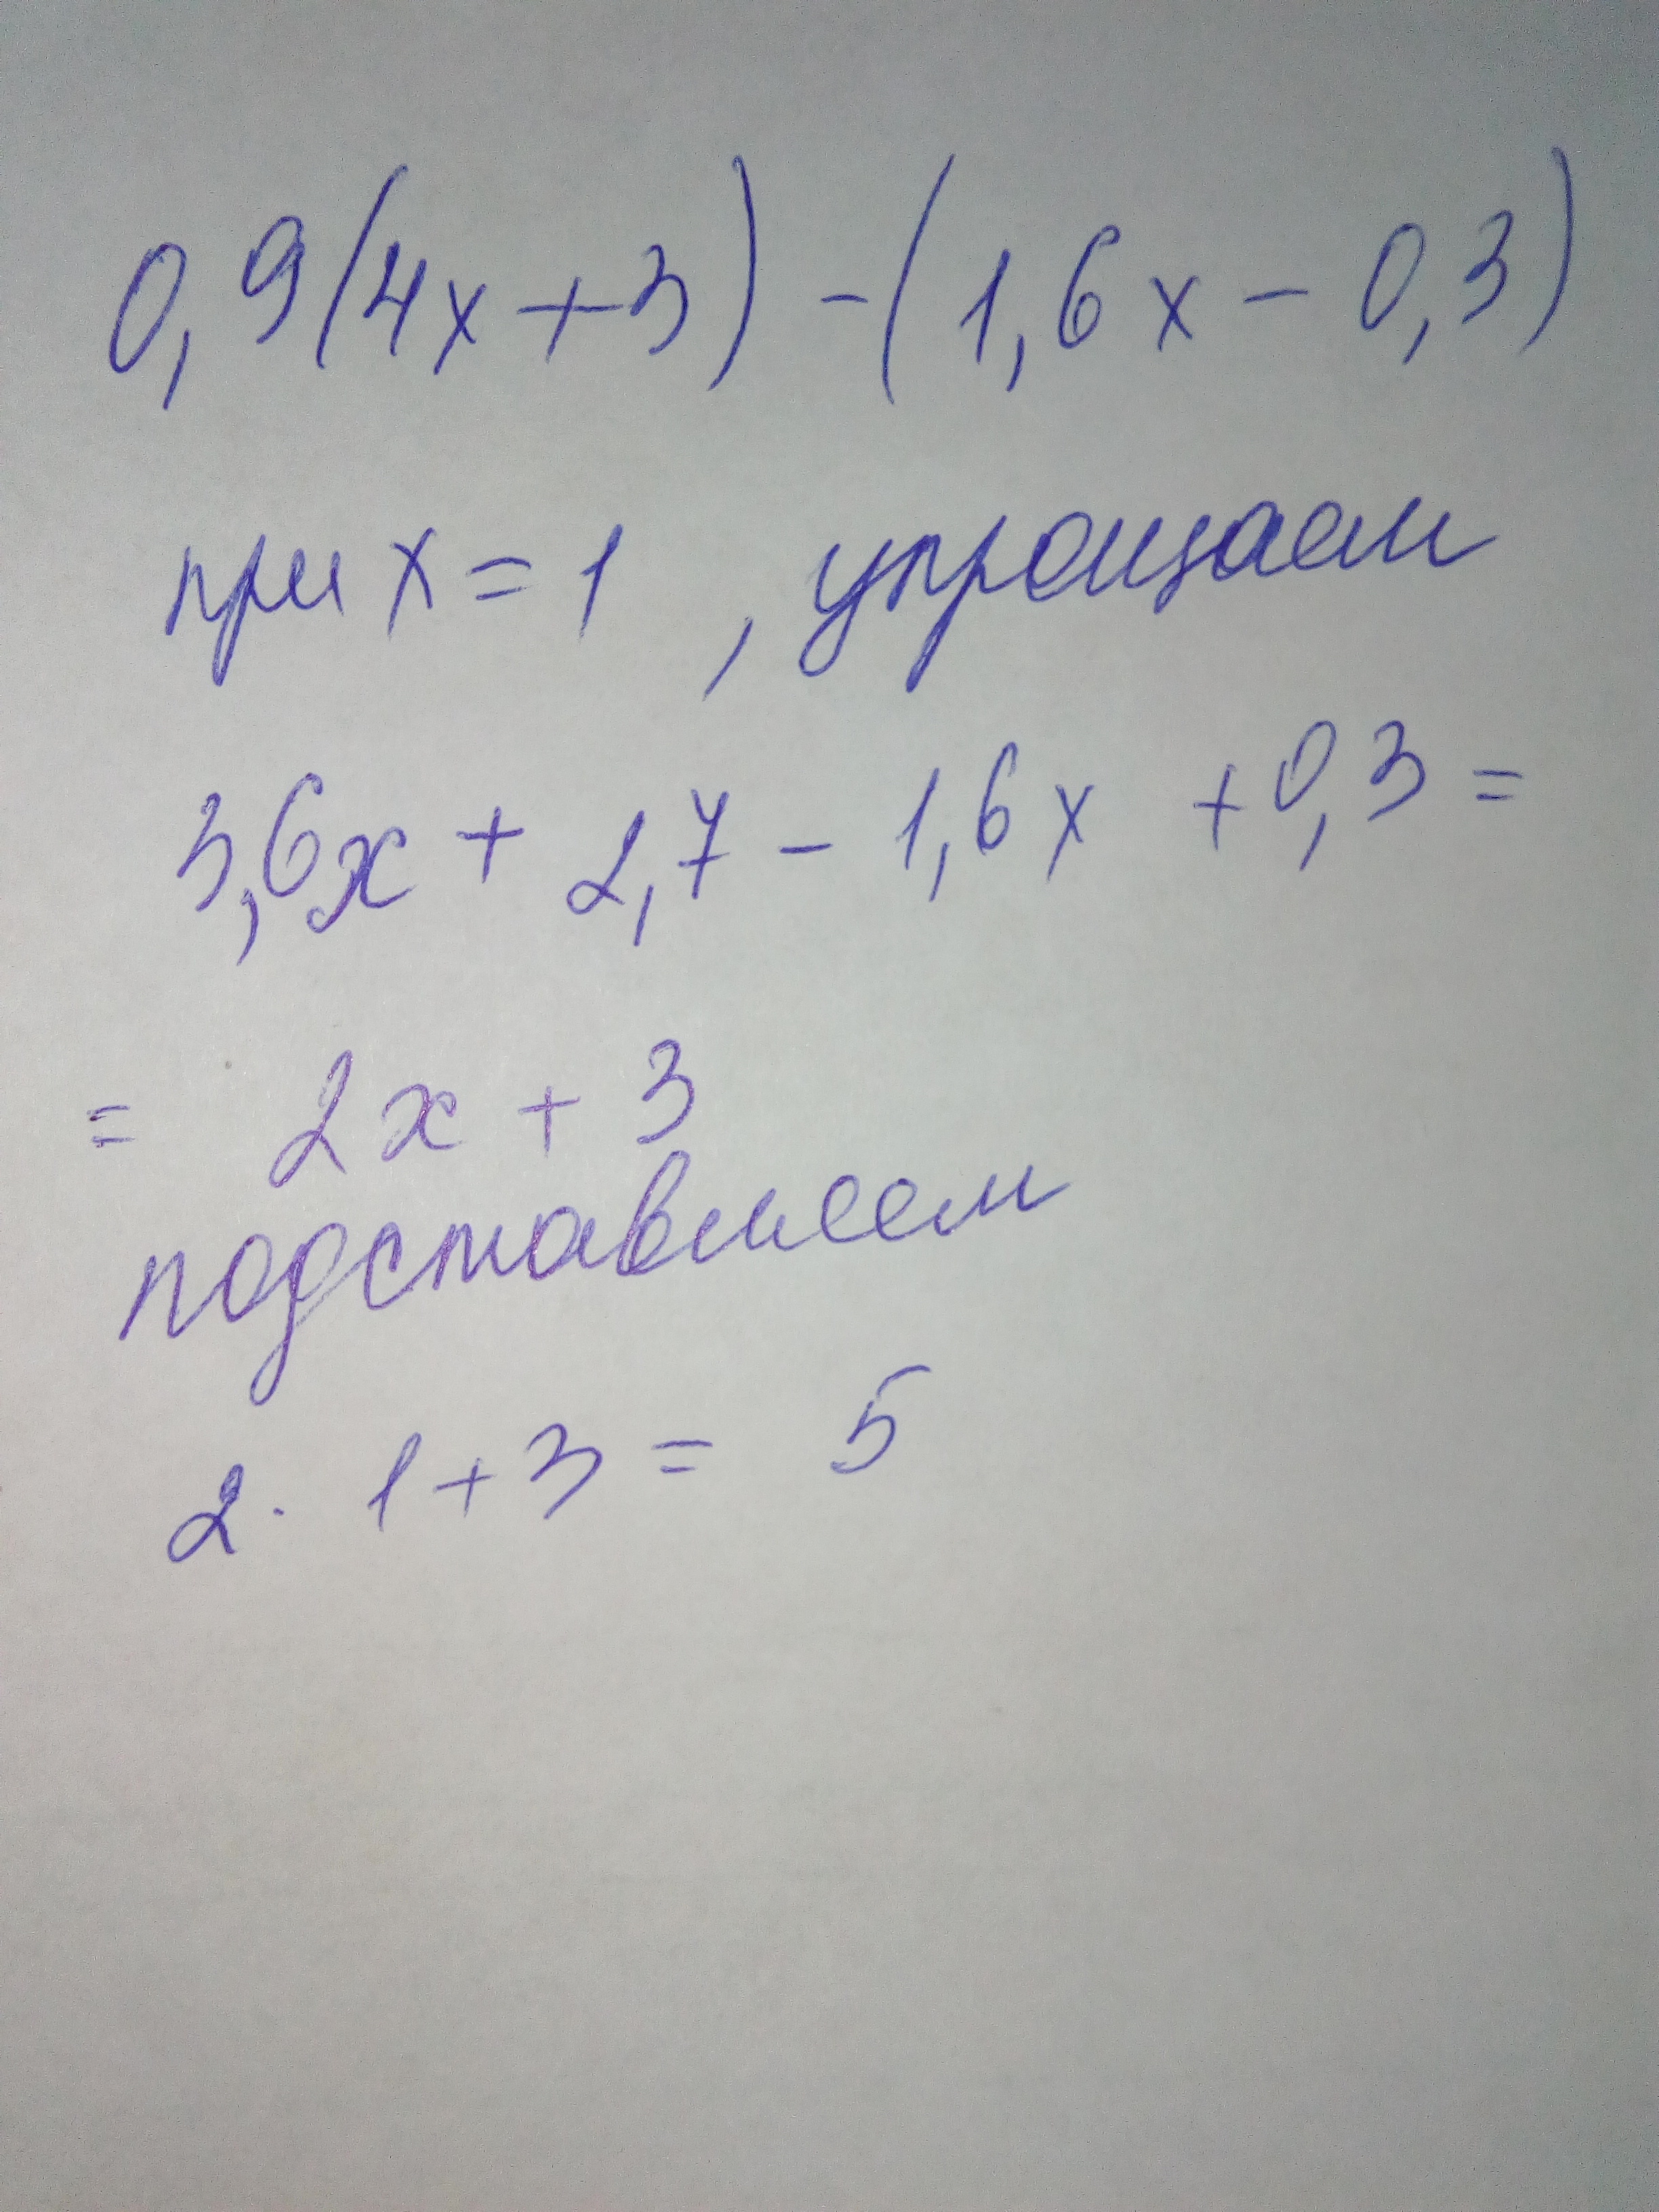 0,9(4x+3)-(1,6x-0,3)
при x=1, упрощаем
3,6x + 2,7 - 1,6x + 0,3 =
= 2x + 3
подставляем
2. 1+3= 5